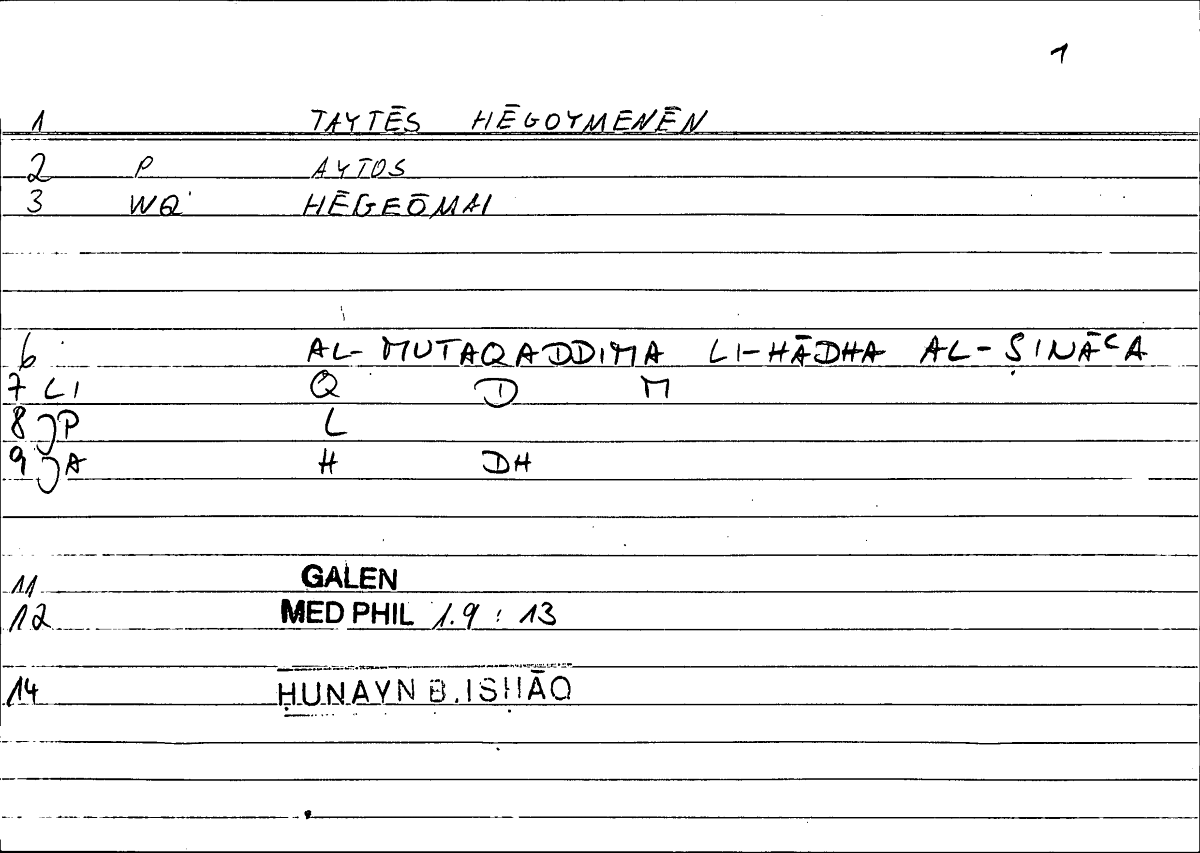 1
1 TAYTĒS HĒGOYMENĒN
2 P AYTOS
3 WQ HĒGEŌMAI
6 AL-MUTAQADDIMA LI-HĀDHA AL-ṢINĀᶜA
7 LI Q D M
8 JP L
9 JA H DH
11 GALEN
12 MED PHIL 1.9 : 13
14 ḤUNAYN B. ISḤĀQ